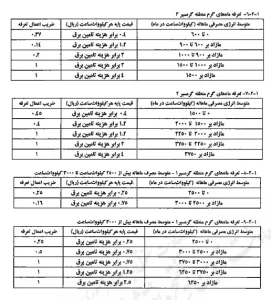 ۶-۲-۱- تعرفه ماه‌های گرم منطقه گرمسیر ۳
متوسط انرژی مصرفی ماهانه (کیلووات‌ساعت در ماه) قیمت پایه هر کیلووات‌ساعت (ریال) ضریب اعمال تعرفه
۰ تا ۶۰۰ ۰.۴ برابر هزینه تامین برق
مازاد بر ۶۰۰ تا ۹۰۰ ۱.۲ برابر هزینه تامین برق ۰.۱۴
مازاد بر ۹۰۰ تا ۱۰۰۰ ۱.۲ برابر هزینه تامین برق ۰.۲
مازاد بر ۱۰۰۰ تا ۱۵۰۰ ۲ برابر هزینه تامین برق ۱
مازاد بر ۱۵۰۰ ۴ برابر هزینه تامین برق ۱
۷-۲-۱- تعرفه ماه‌های گرم منطقه گرمسیر ۲
متوسط انرژی مصرفی ماهانه (کیلووات‌ساعت در ماه) قیمت پایه هر کیلووات‌ساعت (ریال) ضریب اعمال تعرفه
۰ تا ۱۵۰۰ ۰.۴ برابر هزینه تامین برق
مازاد بر ۱۵۰۰ تا ۲۰۰۰ ۱.۲ برابر هزینه تامین برق ۰.۴
مازاد بر ۲۰۰۰ تا ۲۲۵۰ ۱.۲ برابر هزینه تامین برق ۱
مازاد بر ۲۲۵۰ تا ۳۷۵۰ ۲ برابر هزینه تامین برق ۱
مازاد بر ۳۷۵۰ ۴ برابر هزینه تامین برق ۱
۸-۲-۱- تعرفه ماه‌های گرم منطقه گرمسیر ۱- متوسط مصرف ماهانه از ۲۵۰۰ کیلووات‌ساعت تا ۳۰۰۰ کیلووات‌ساعت
متوسط انرژی مصرفی ماهانه (کیلووات‌ساعت در ماه) قیمت پایه هر کیلووات‌ساعت (ریال) ضریب اعمال تعرفه
۰ تا ۲۵۰۰ ۰.۲۵ برابر هزینه تامین برق ۰.۲۵
مازاد بر ۲۵۰۰ تا ۳۰۰۰ ۰.۷۵ برابر هزینه تامین برق ۰.۱۶
۹-۲-۱- تعرفه ماه‌های گرم منطقه گرمسیر ۱- متوسط مصرف ماهانه بیش از ۳۰۰۰ کیلووات‌ساعت
متوسط انرژی مصرفی ماهانه (کیلووات‌ساعت در ماه) قیمت پایه هر کیلووات‌ساعت (ریال) ضریب اعمال تعرفه
۰ تا ۲۵۰۰ ۰.۲۵ برابر هزینه تامین برق ۰.۲۵
مازاد بر ۲۵۰۰ تا ۳۰۰۰ ۰.۷۵ برابر هزینه تامین برق ۰.۵
مازاد بر ۳۰۰۰ تا ۳۷۵۰ برابر هزینه تامین برق ۱
مازاد بر ۳۷۵۰ تا ۶۲۵۰ برابر هزینه تامین برق ۱
مازاد بر ۶۲۵۰ ۲.۵ برابر هزینه تامین برق ۱